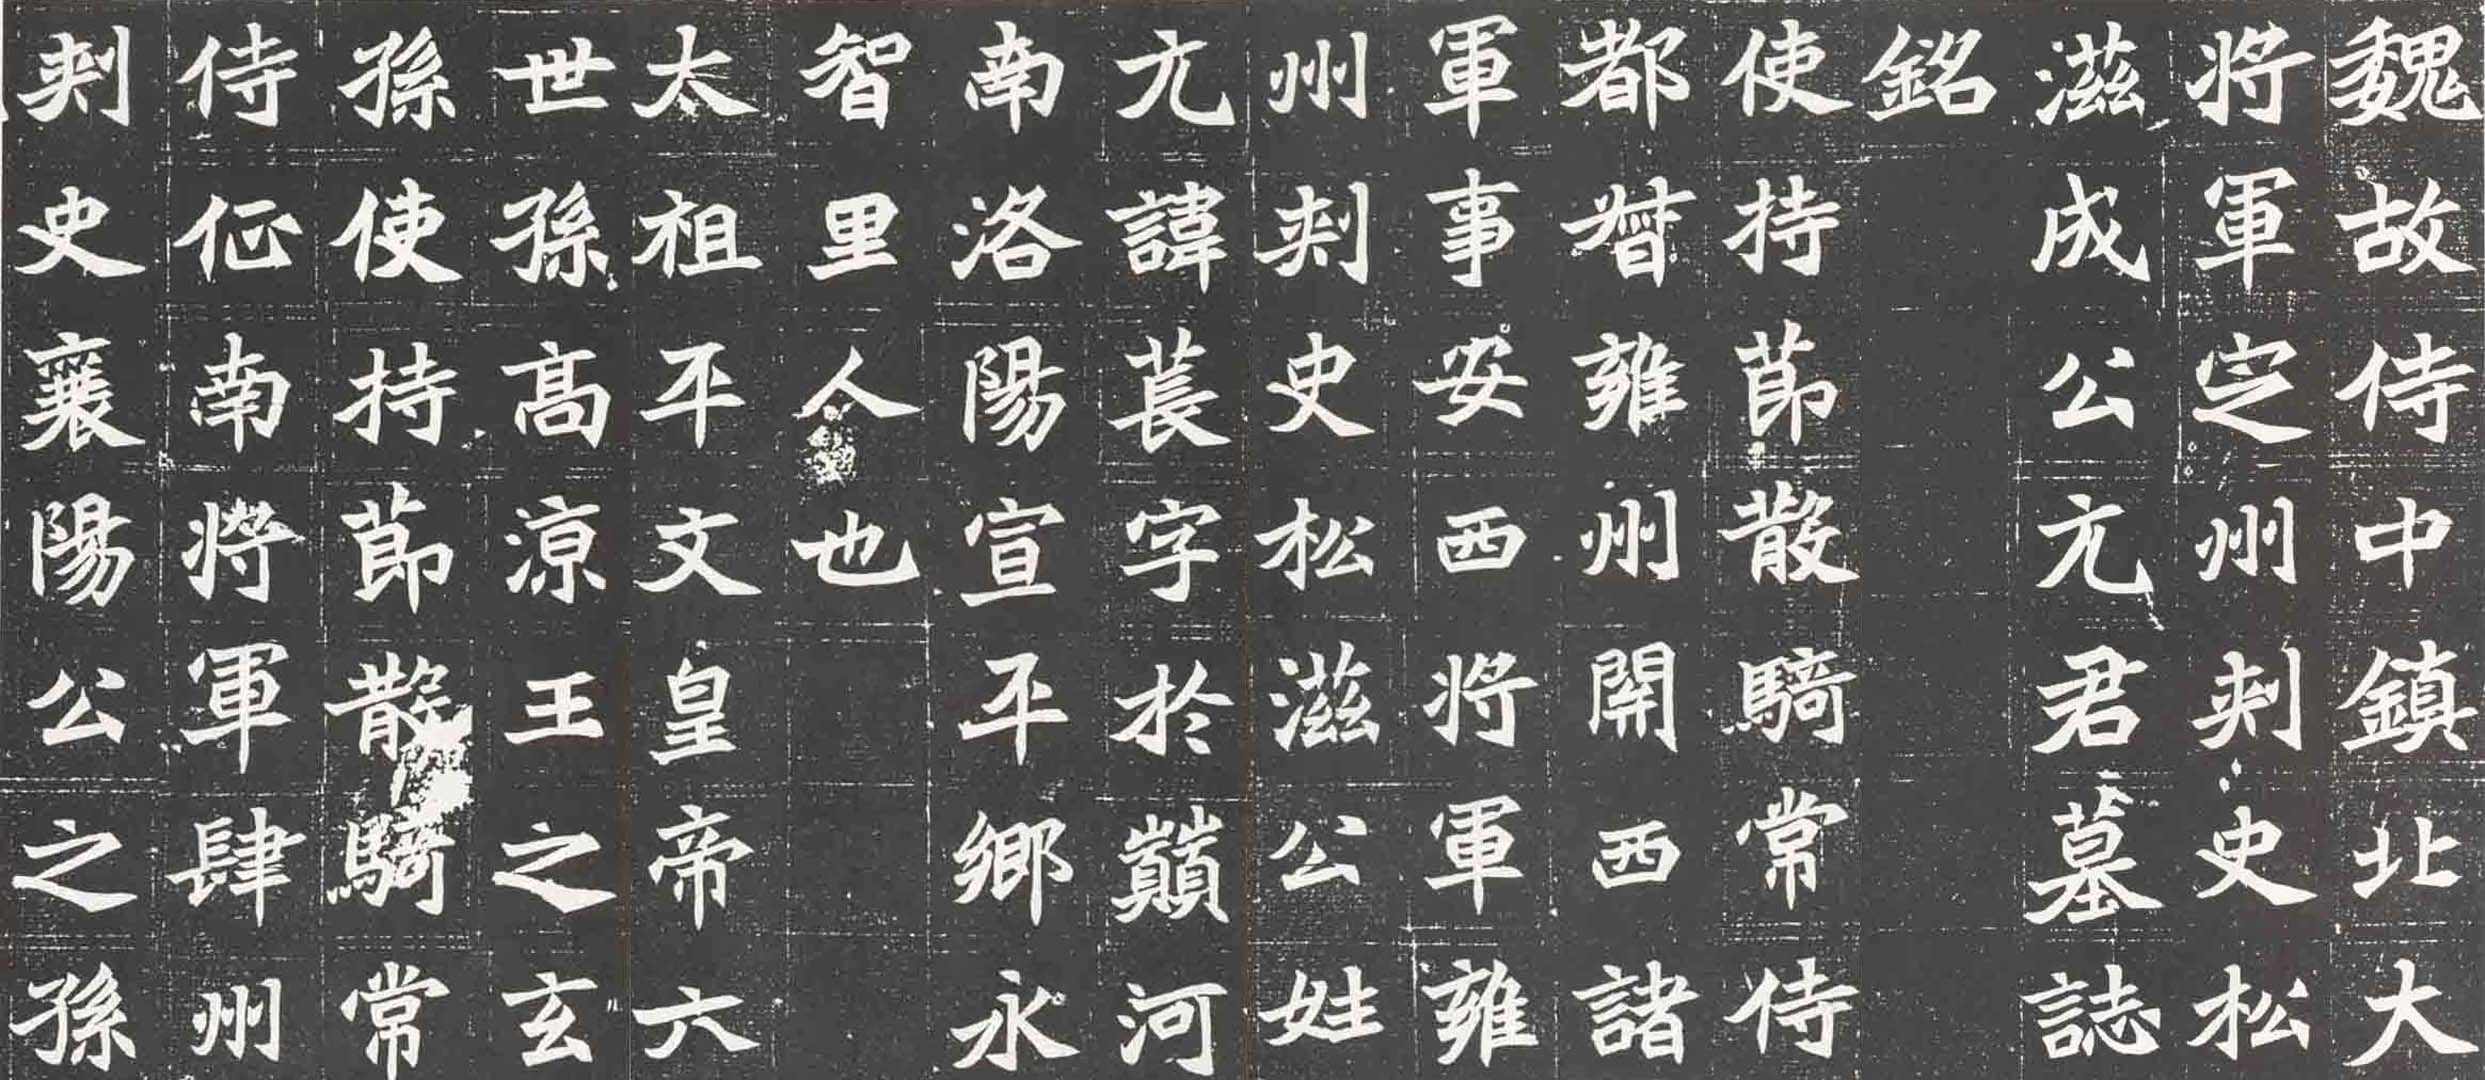 魏故侍中鎮北大
将軍定州刾史松
滋成公元君墓誌
銘
使持節散騎常侍
都督雍州開西諸
軍事安西将軍雍
州刾史松滋公姓
元諱萇字於巔河
南洛陽宣平鄉永
智里人也
太祖平文皇帝六
世孫髙涼王之玄
孫使持節散騎常
侍征南将軍肆州
刾史襄陽公之孫